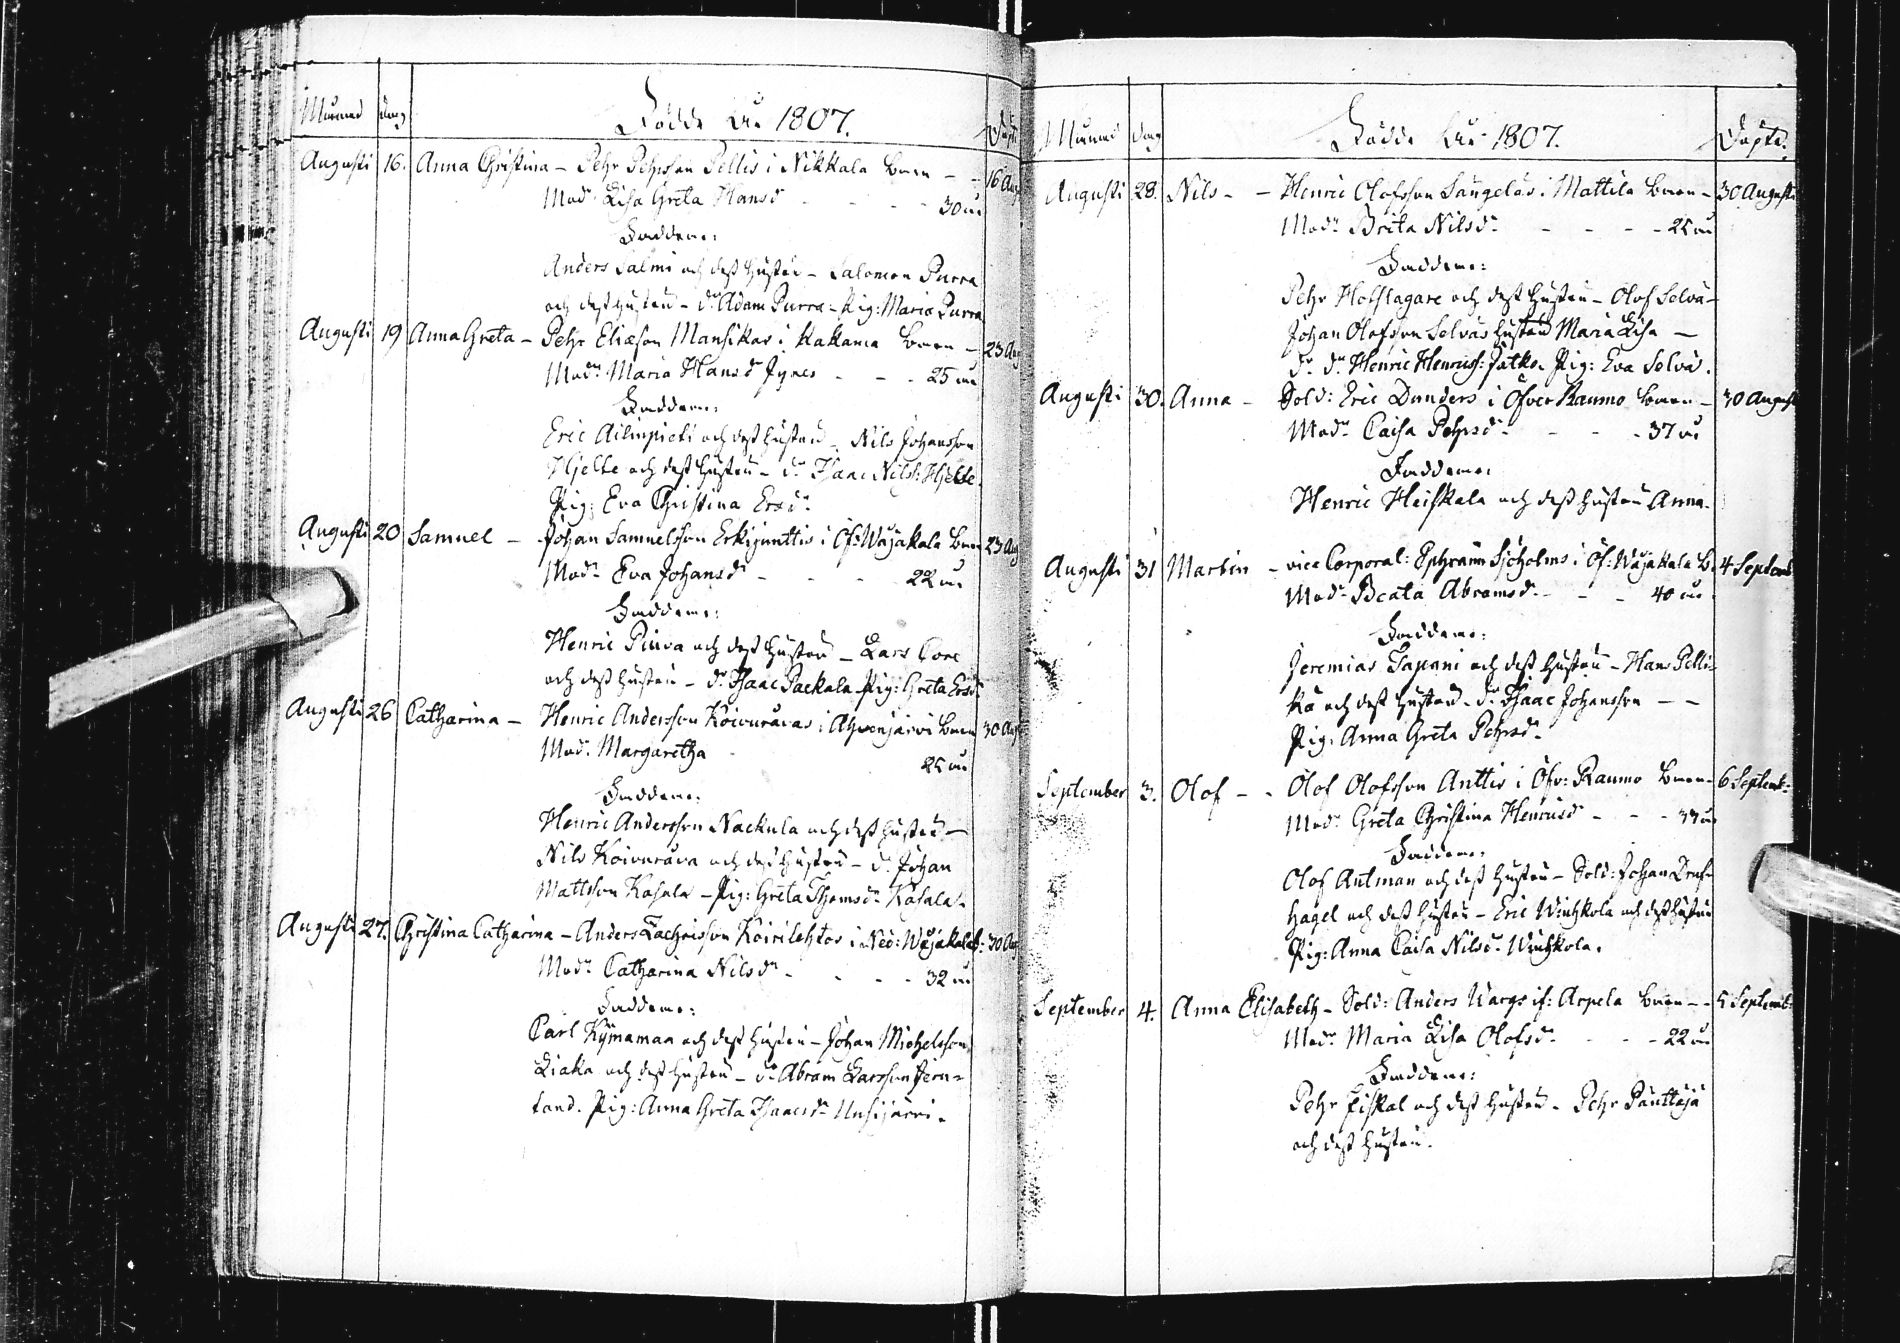 Månad dag Födde År 1807. Döpt.
Augusti 16. Anna Christina – Pehr Pehrson Pellis i Nikkala barn – – 16 Aug
Mod: Lisa Greta Hansdr – – – 30 år
Faddrar:
Anders Salmi och dess hustru – Salomon Purra
och dess hustru – dr. Adam Purra – Pig: Maria Purra
Augusti 19 Anna Greta – Pehr Eliæson Mansikas i Kakama barn – 23 Aug
Modr Maria Hansdr – – 25 år
Faddrar:
Eric Ailinpieti och dess hustru – Nils Johansson
Hjelte och dess hustru – dr. Isaac Nilss: Hjelte.
Pig: Eva Christina Ersdr
Augusti 20 Samuel – Johan Samuelsson Erkijunttis i Öf: Wåjakala barn 23 Aug
Modr Eva Johansdr – – – 22 år
Faddrar:
Henric Pinva och dess hustru – Lars
och dess hustru – dr. Isaac Packala Pig: Greta Ersdr
Augusti 26 Catharina – Henric Andersson Koivuråvas i Ahvenjärvi barn 30 Aug
Mod: Margaretha 25 år
Faddrar:
Henric Andersson Nackula och dess hustru –
Nils Koivuråva och dess hustru – dr. Johan
Mattsson Kasala – Pig: Greta Thomsdr Kasala.
Augusti 27. Christina Catharina – Anders Zachrisson Koirilehtos i Ned: Wåjakala b: 30 Aug
Modr Catharina Nilsdr – – – 32 år
Faddrar:
Carl Kymamaa och dess hustru – Johan Michelsson
Liaka och dess hustru – dr. Abram Larsson Jern-
tand. Pig: Anna Greta Isaacsdr Unsijärvi.
Månad dag Födde År 1807. Döpte.
Augusti 28. Nils – – Henric Olofsson Sangelas i Mattila barn – 30 Augusti
Modr Brita Nilsdr – – – – 25 år
Faddrar:
Pehr Hofslagare och dess hustru – Olof Selvä –
Johan Olofsson Selväs hustru Maria Lisa –
dr. Henric Henricss: Jatko. Pig: Eva Selvä.
Augusti 30. Anna – Sold: Eric Dunders i Öfver Raumo barn – 30 August
Modr Caisa Pehrsdr – – – 37 år
Faddrar:
Henric Heiskala och dess hustru Anna.
Augusti 31 Martin – vice Corporal: Ephraim Sjöholms i Öf: Wåjakala b. 4 Septemb
Modr Beata Abramsdr – – – 40 år
Faddrar:
Jeremias Tapani och dess hustru – Hans Pelli-
ka och dess hustru – dr. Isaac Johansson – –
Pig: Anna Greta Pehrsdr
September 3. Olof – – Olof Olofsson Anttis i Öfv: Raumo barn – 6 Septemb:
Modr Greta Christina Henricsdr – – – 37 år
Faddrar:
Olof Antman och dess hustru – Sold: Johan
hagel och dess hustru – Eric Winhkola och dess hustru
Pig: Anna Caisa Nilsdr Winhkola.
September 4. Anna Elisabeth – Sold: Anders Wargs if: Arpela barn – – 5 Septemb:
Modr Maria Lisa Olofsdr – – – 22 år
Faddrar:
Pehr Fiskal och dess hustru – Pehr Pänttäjä
och dess hustru.